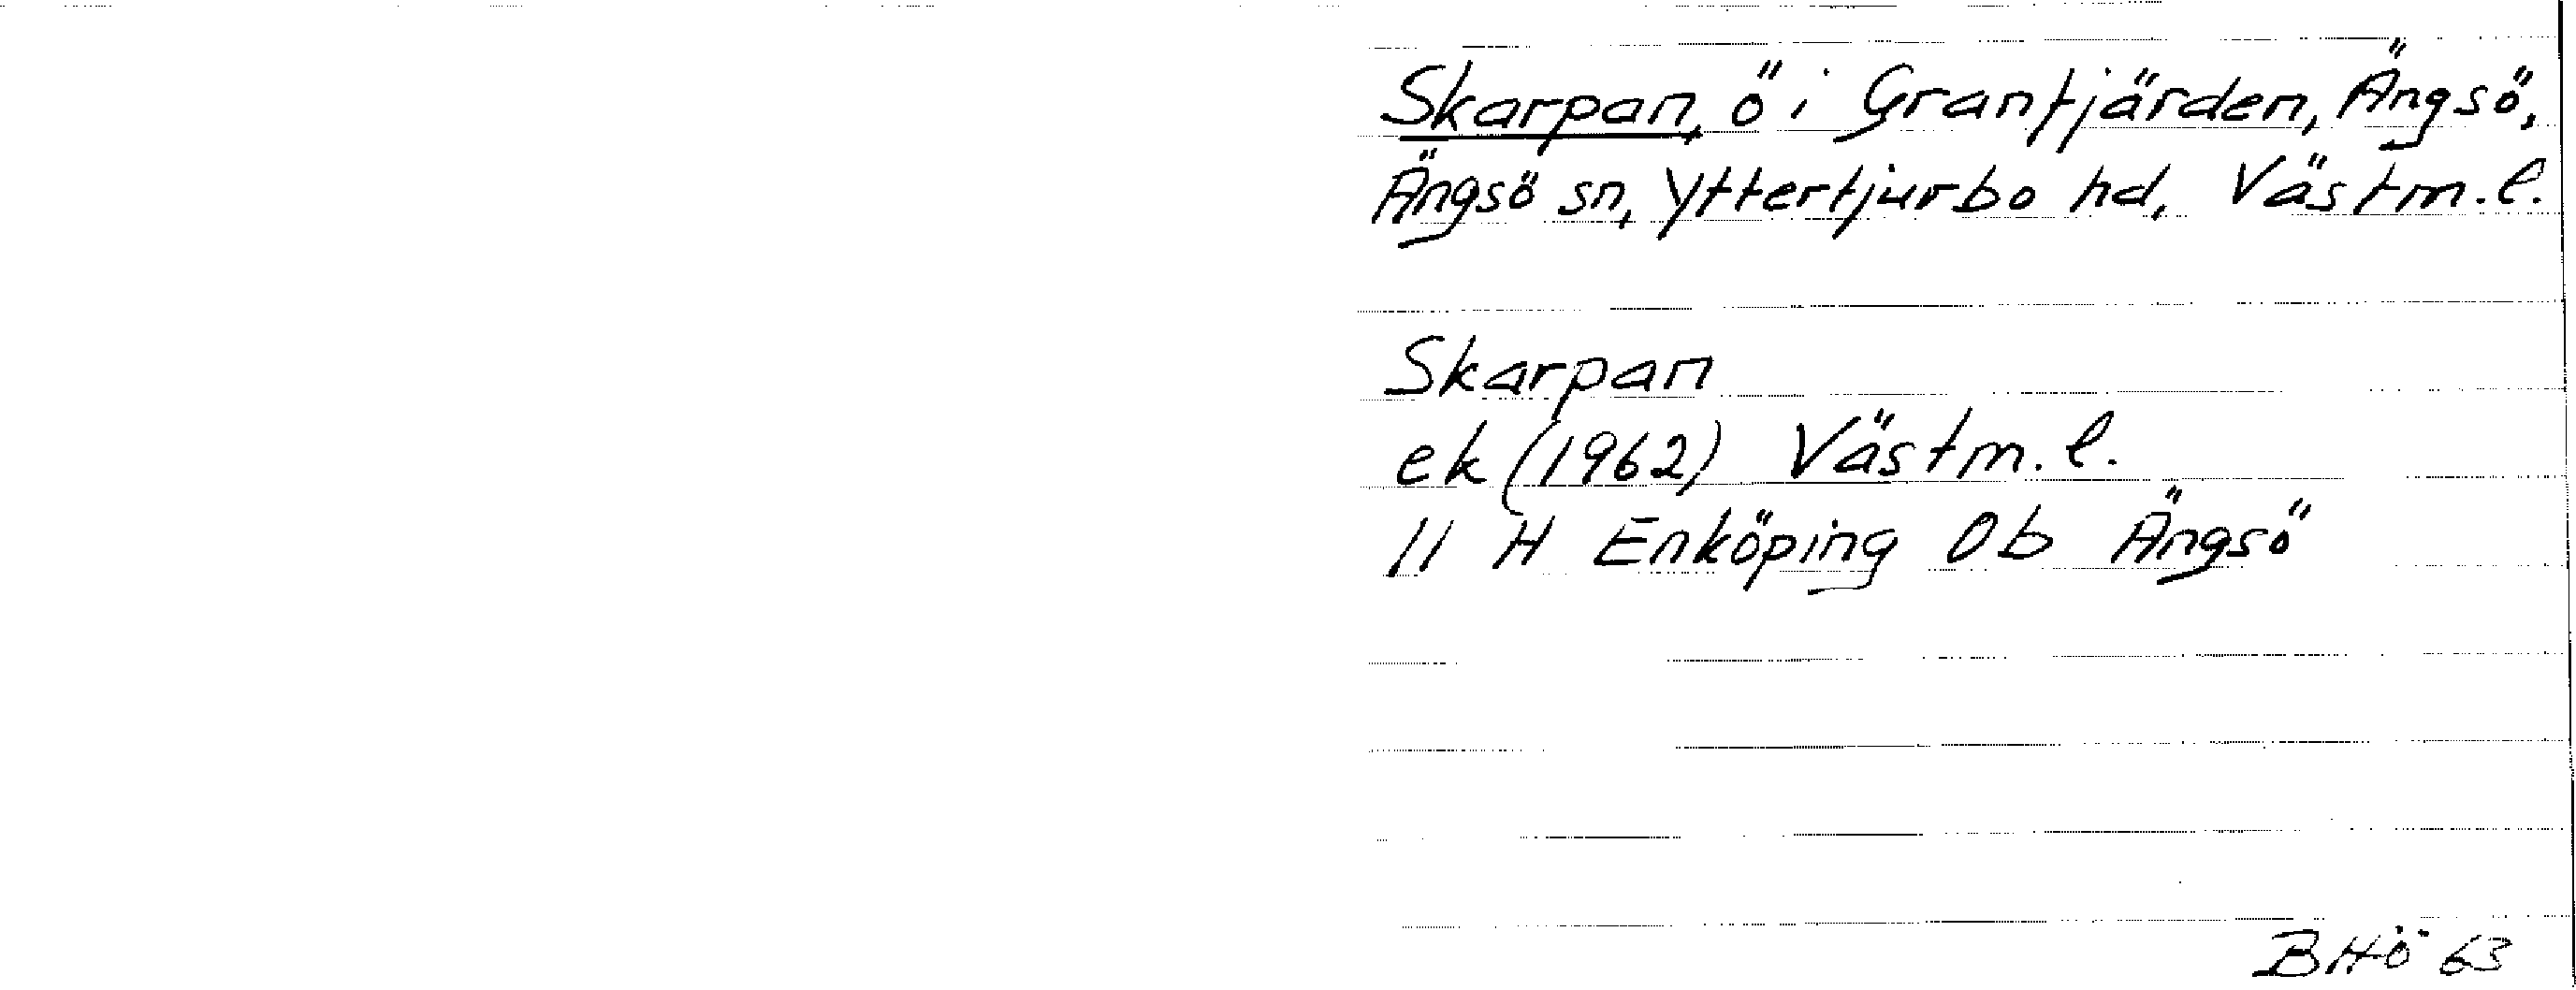 Skarpan, ö i Granfjärden, Ängsö,
Ängsö sn, Yttertjurbo hd, Västm. l.
Skarpan
ek (1962) Västm. l.
11 H Enköping 0b Ängsö
BHö 63